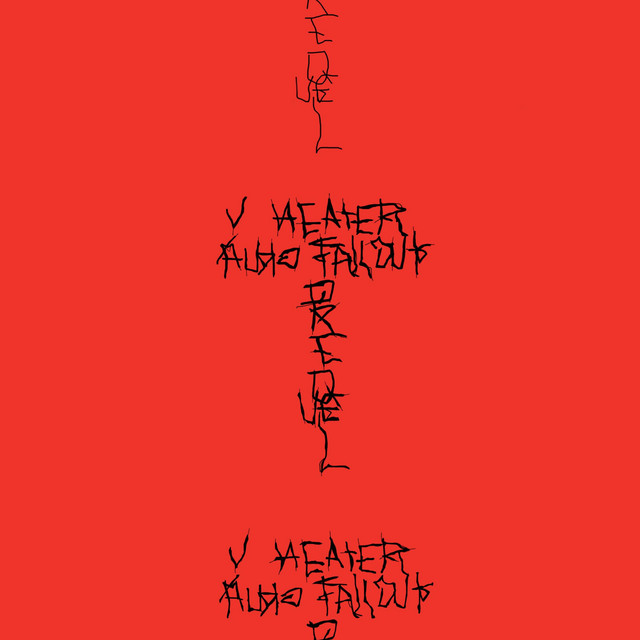 REQUEL
V HEATER
AUDIO FALLOUT
PREQUEL
V HEATER
AUDIO FALLOUT
P